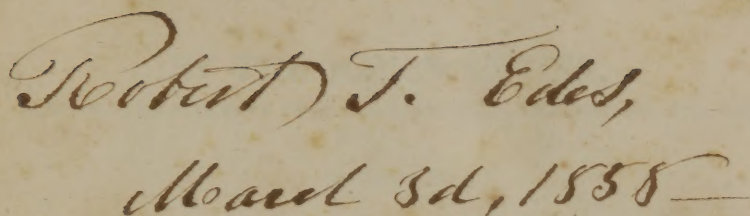 Robert T. Edes,
March 3d, 1858